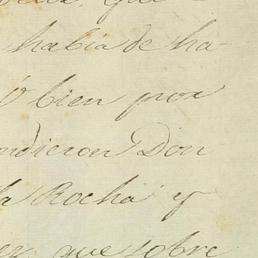 que
había de ha-
ó bien por
ndieron Don
la Rocha y
que sobre